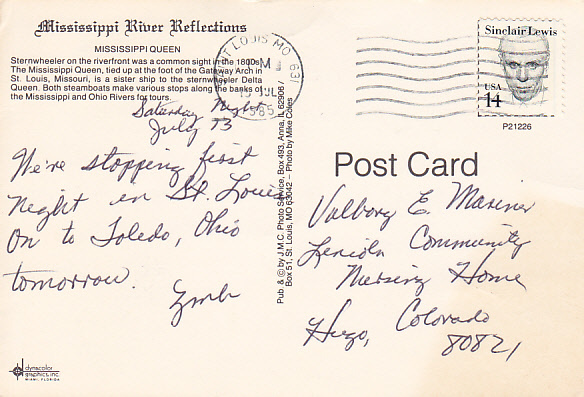 Mississippi River Reflections
MISSISSIPPI QUEEN
Sternwheeler on the riverfront was a common sight in the 1800s.
The Mississippi Queen, tied up at the foot of the Gateway Arch in
St. Louis, Missouri, is a sister ship to the sternwheeler Delta
Queen. Both steamboats make various stops along the banks of
the Mississippi and Ohio Rivers for tours.
Saturday Night
July 13
We're stopping first
night in St. Louis
On to Toledo, Ohio
tomorrow.
dynacolor
graphics, inc.
MIAMI, FLORIDA
Pub & © by J.M.C. Photo Service, Box 493, Anna, IL 62906
Box 51, St. Louis, MO 63042 – Photo by Mike Coles
SAINT LOUIS MO 631
JUL
1985
Sinclair Lewis
USA
14
P21226
Post Card
Valborg E. Mariner
Lincoln Community
Nursing Home
Hugo, Colorado
80821